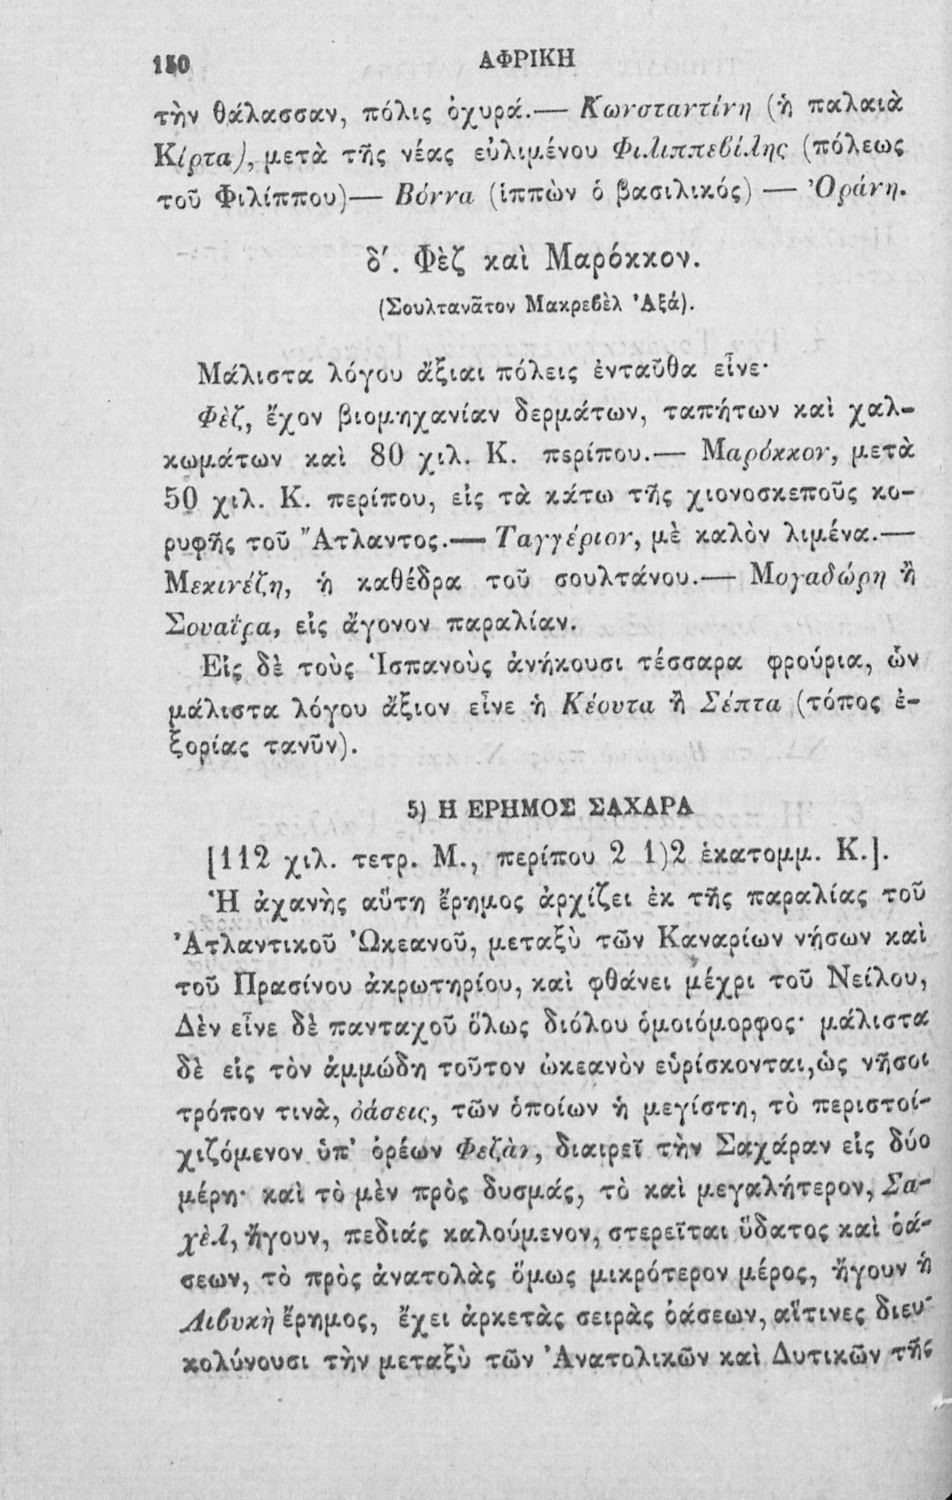 150 ΑΦΡΙΚΗ
τὴν θάλασσαν, πόλις ὀχυρά.— Κωνσταντίνη (ἡ παλαιὰ
Κίρτα), μετὰ τῆς νέας εὐλιμένου Φιλιππεβίλης (πόλεως
τοῦ Φιλίππου)— Βόννα (ἱππὼν ὁ βασιλικός) — Ὀράνη.
δ'. Φὲζ καὶ Μαρόκκον.
(Σουλτανᾶτον Μακρεβὲλ Ἀξά).
Μάλιστα λόγου ἄξιαι πόλεις ἐνταῦθα εἶνε·
Φὲζ, ἔχον βιομηχανίαν δερμάτων, ταπήτων καὶ χαλ-
κωμάτων καὶ 80 χιλ. Κ. περίπου.— Μαρόκκον, μετὰ
50 χιλ. Κ. περίπου, εἰς τὰ κάτω τῆς χιονοσκεποῦς κο-
ρυφῆς τοῦ Ἄτλαντος.— Ταγγέριον, μὲ καλὸν λιμένα.—
Μεκινέζη, ἡ καθέδρα τοῦ σουλτάνου.— Μογαδώρη ἢ
Σουαΐρα, εἰς ἄγονον παραλίαν.
Εἰς δὲ τοὺς Ἱσπανοὺς ἀνήκουσι τέσσαρα φρούρια, ὧν
μάλιστα λόγου ἄξιον εἶνε ἡ Κέουτα ἢ Σέπτα (τόπος ἐ-
ξορίας τανῦν).
5) Η ΕΡΗΜΟΣ ΣΑΧΑΡΑ
[112 χιλ. τετρ. Μ., περίπου 2 1)2 ἑκατομμ. Κ.].
Ἡ ἀχανὴς αὕτη ἔρημος ἀρχίζει ἐκ τῆς παραλίας τοῦ
Ἀτλαντικοῦ Ὠκεανοῦ, μεταξὺ τῶν Καναρίων νήσων καὶ
τοῦ Πρασίνου ἀκρωτηρίου, καὶ φθάνει μέχρι τοῦ Νείλου,
Δὲν εἶνε δὲ πανταχοῦ ὅλως διόλου ὁμοιόμορφος· μάλιστα
δὲ εἰς τὸν ἀμμώδη τοῦτον ὠκεανὸν εὑρίσκονται, ὡς νῆσοι
τρόπον τινὰ, ὀάσεις, τῶν ὁποίων ἡ μεγίστη, τὸ περιστοί-
χιζόμενον ὑπ' ὀρέων Φεζὰν, διαιρεῖ τὴν Σαχάραν εἰς δύο
μέρη· καὶ τὸ μὲν πρὸς δυσμάς, τὸ καὶ μεγαλήτερον, Σα-
χὲλ, ἤγουν, πεδιάς καλούμενον, στερεῖται ὕδατος καὶ ὀά-
σεων, τὸ πρὸς ἀνατολὰς ὅμως μικρότερον μέρος, ἤγουν ἡ
Λιβυκὴ ἔρημος, ἔχει ἀρκετὰς σειρὰς ὀάσεων, αἵτινες διευ-
κολύνουσι τὴν μεταξὺ τῶν Ἀνατολικῶν καὶ Δυτικῶν τῆς